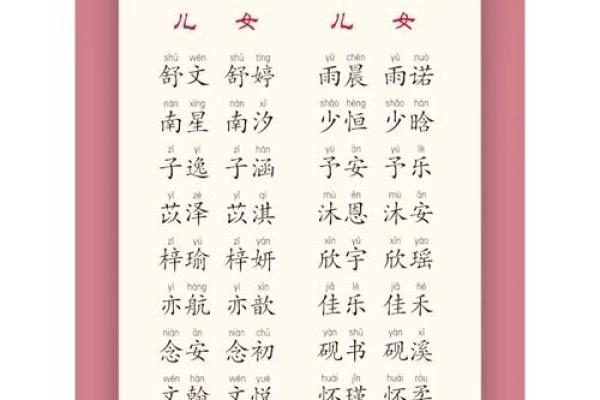 儿 女 儿 女
shū wén shū tíng yǔ chén yǔ nuò
舒文 舒婷 雨晨 雨诺
nán xīng nán xī shǎo héng shǎo hán
南星 南汐 少恒 少晗
zǐ yì zǐ hán yǔ ān yǔ lè
子逸 子涵 予安 予乐
yǐ zé yǐ qí mù ēn mù ān
苡泽 苡淇 沐恩 沐安
zǐ yú zǐ yán xīn yǔ xīn yáo
梓瑜 梓妍 欣宇 欣瑶
yì háng yì xīn jiā lè jiā hé
亦航 亦歆 佳乐 佳禾
niàn ān niàn chū yàn shū yàn xī
念安 念初 砚书 砚溪
wén hàn wén yuè huái jǐn huái róu
文翰 文悦 怀瑾 怀柔